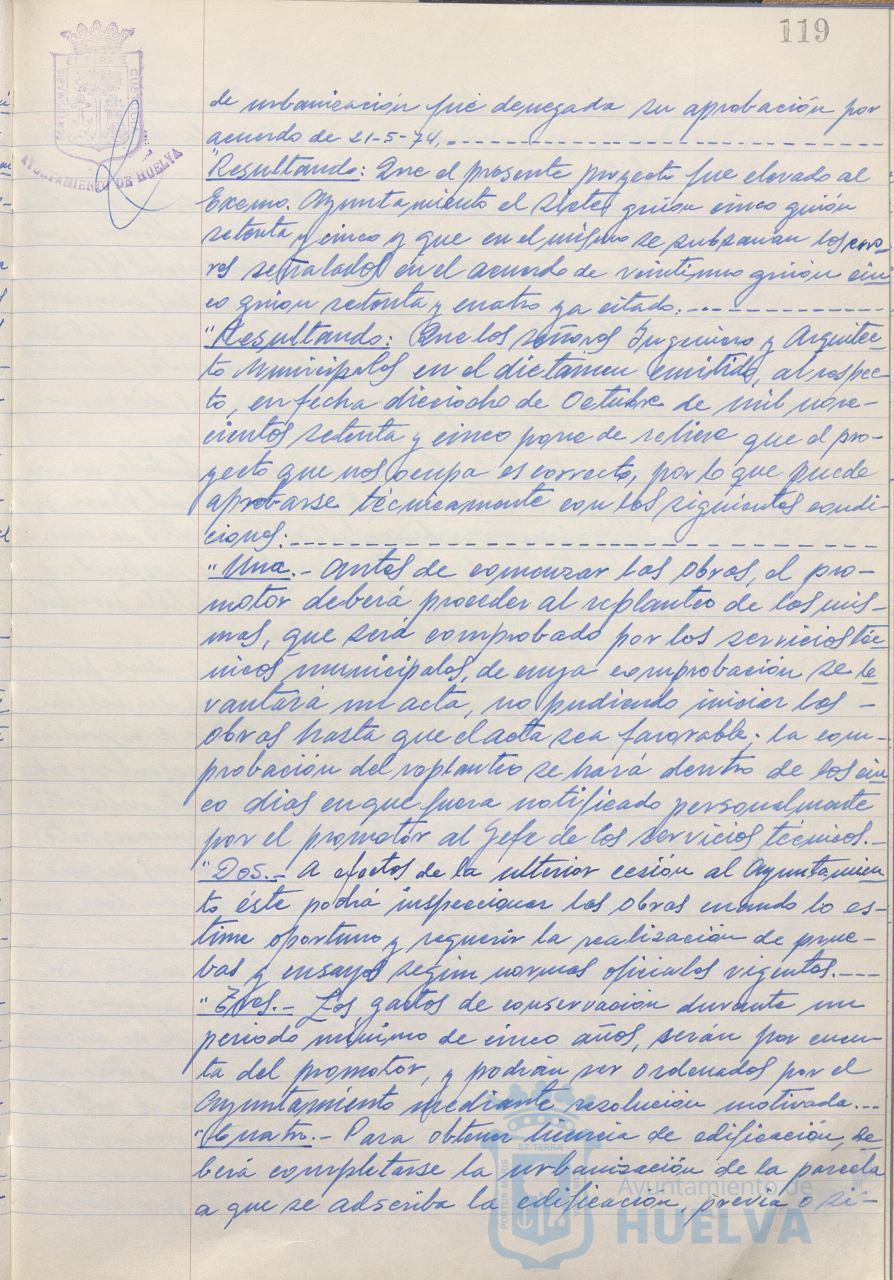 119
ET TERRE
PORTUS MARIS
CUSTODIA
AYUNTAMIENTO DE HUELVA
de urbanización fué denegada su aprobación por
acuerdo de 21-5-74.
"Resultando: Que el presente proyecto fue elevado al
Excmo. Ayuntamiento el siete guión cinco guión
setenta y cinco y que en el mismo se subsanan los erro-
res señalados en el acuerdo de veintiuno guión cin
co guión setenta y cuatro ya citado.
"Resultando: Que los señores Ingeniero y Arquitec-
to Municipales en el dictamen emitido, al respec-
to, en fecha dieciocho de Octubre de mil nove-
cientos setenta y cinco pone de relieve que el pro-
yecto que nos ocupa es correcto, por lo que puede
aprobarse técnicamente con las siguientes condi
ciones:
"Una.- Antes de comenzar las obras, el pro-
motor deberá proceder al replanteo de las mis-
mas, que será comprobado por los servicios téc-
nicos municipales, de cuya comprobación se le
vantará un acta, no pudiendo iniciar las -
obras hasta que el acta sea favorable; la com-
probación del replanteo se hará dentro de los cin
co dias en que fuera notificado personalmente
por el promotor al Jefe de los servicios técnicos.-
"Dos.- A efectos de la ulterior cesión al Ayuntamien
to éste podrá inspeccionar las obras cuando lo es-
time oportuno y requerir la realización de prue-
bas y ensayos según normas oficiales vigentes.---
"Tres.- Los gastos de conservación durante un
periodo mínimo de cinco años, serán por cuen-
ta del promotor, y podrán ser ordenados por el
Ayuntamiento mediante resolución motivada.--
"Cuatro.- Para obtener licencia de edificación, de
berá completarse la urbanización de la parcela
a que se adscriba la edificación, previa o si-
ET TERRA
PORTUS MARIS
Ayuntamiento de
HUELVA